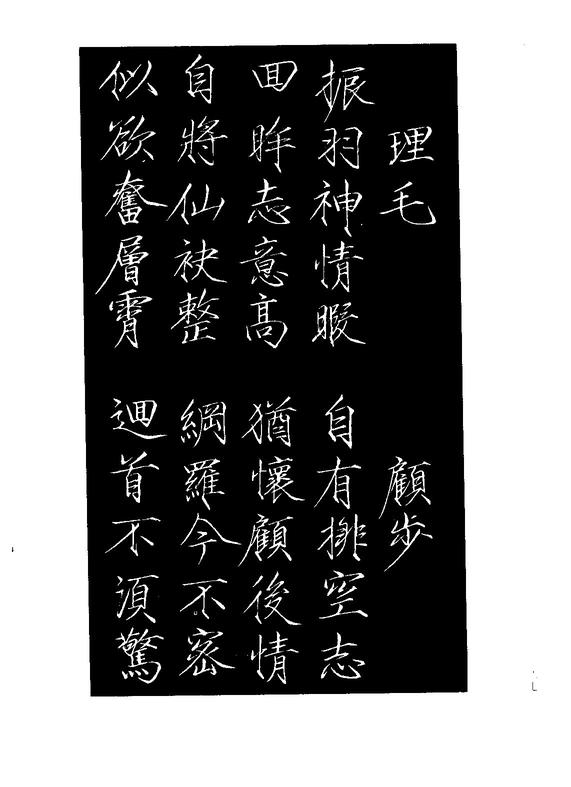 理毛
振羽神情暇
回眸志意高
自將仙袂整
似欲奮層霄
顧步
自有排空志
猶懷顧後情
網羅今不密
迴首不須驚